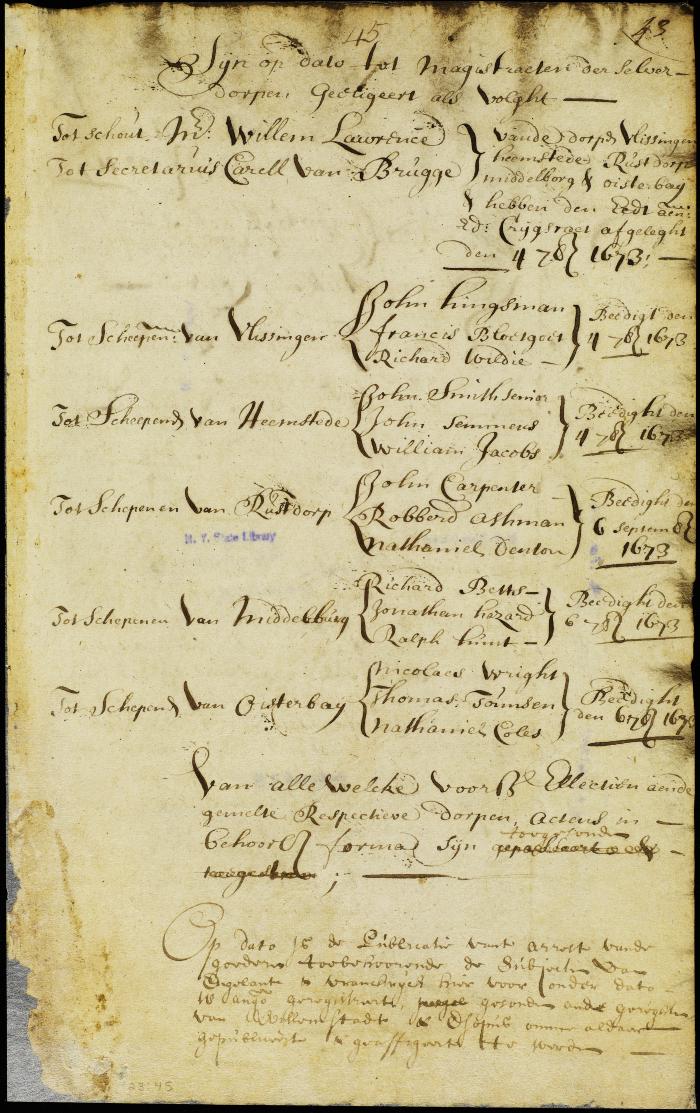 45
43
Sijn op dato tot Magistraeten der selver
dorpen Geeligeert als volght
Tot schout Mr: Willem Lawrence
Tot Secretarius Carell van Brugge
vande dorpen Vlissingen
heemstede Rustdorp
middelborg & oisterbay
& hebben den Eedt aen
Ed: Crijgsraet afgeleght
den 4 7b 1673;
Tot Scheepen van Vlissingen
John hingsman
francis Bloetgoet
Richard Wildie
Beedigt den
4 7b 1673
Tot Scheepens van Heemstede
John Smith senior
John Semmens
William Jacobs
Beedight den
4 7b 1673
Tot Schepenen van Rustdorp
John Carpenter
Robberd Ashman
Nathaniel Denton
Beedight den
6 septemb
1673
N. Y. State Library
Tot Schepenen van Middelburg
Richard Betts
Jonathan hazard
Ralph hunt
Beedight den
6 7b 1673
Tot Schepens van Oisterbay
Nicolaes Wright
Thomas Tounsen
Nathaniel Coles
Beedight
den 6 7b 1673
Van alle welcke voorss Ellectien aende
gemelte Respective dorpen, Actens in
behoorl forma sijn toegesonden
Op dato is de Publicatie vant arrest vande
goederen toebehoorende de Subjecten van
Engelant & Vranckryck hier voor onder dato
geregistreert, gesonden
van Willemstadt & Esopus omme aldaer
gepubliceert & geaffigeert te worden
23:45